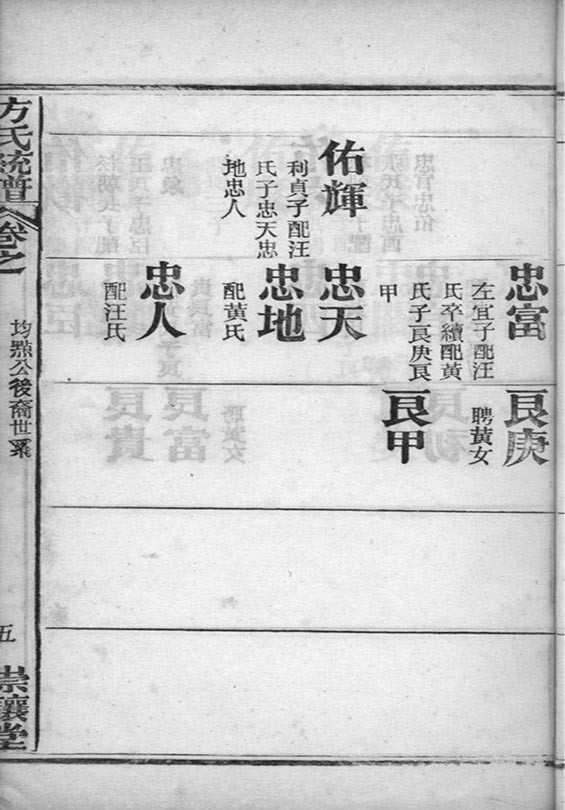 佑輝
利貞子配汪
氏子忠天忠
地忠人
忠富
左宜子配汪
氏卒續配黃
氏子良庚良
甲
忠天
忠地
配黃氏
忠人
配汪氏
良庚
聘黃女
良甲
方氏統譜
卷之
均點公後裔世系
五
崇讓堂